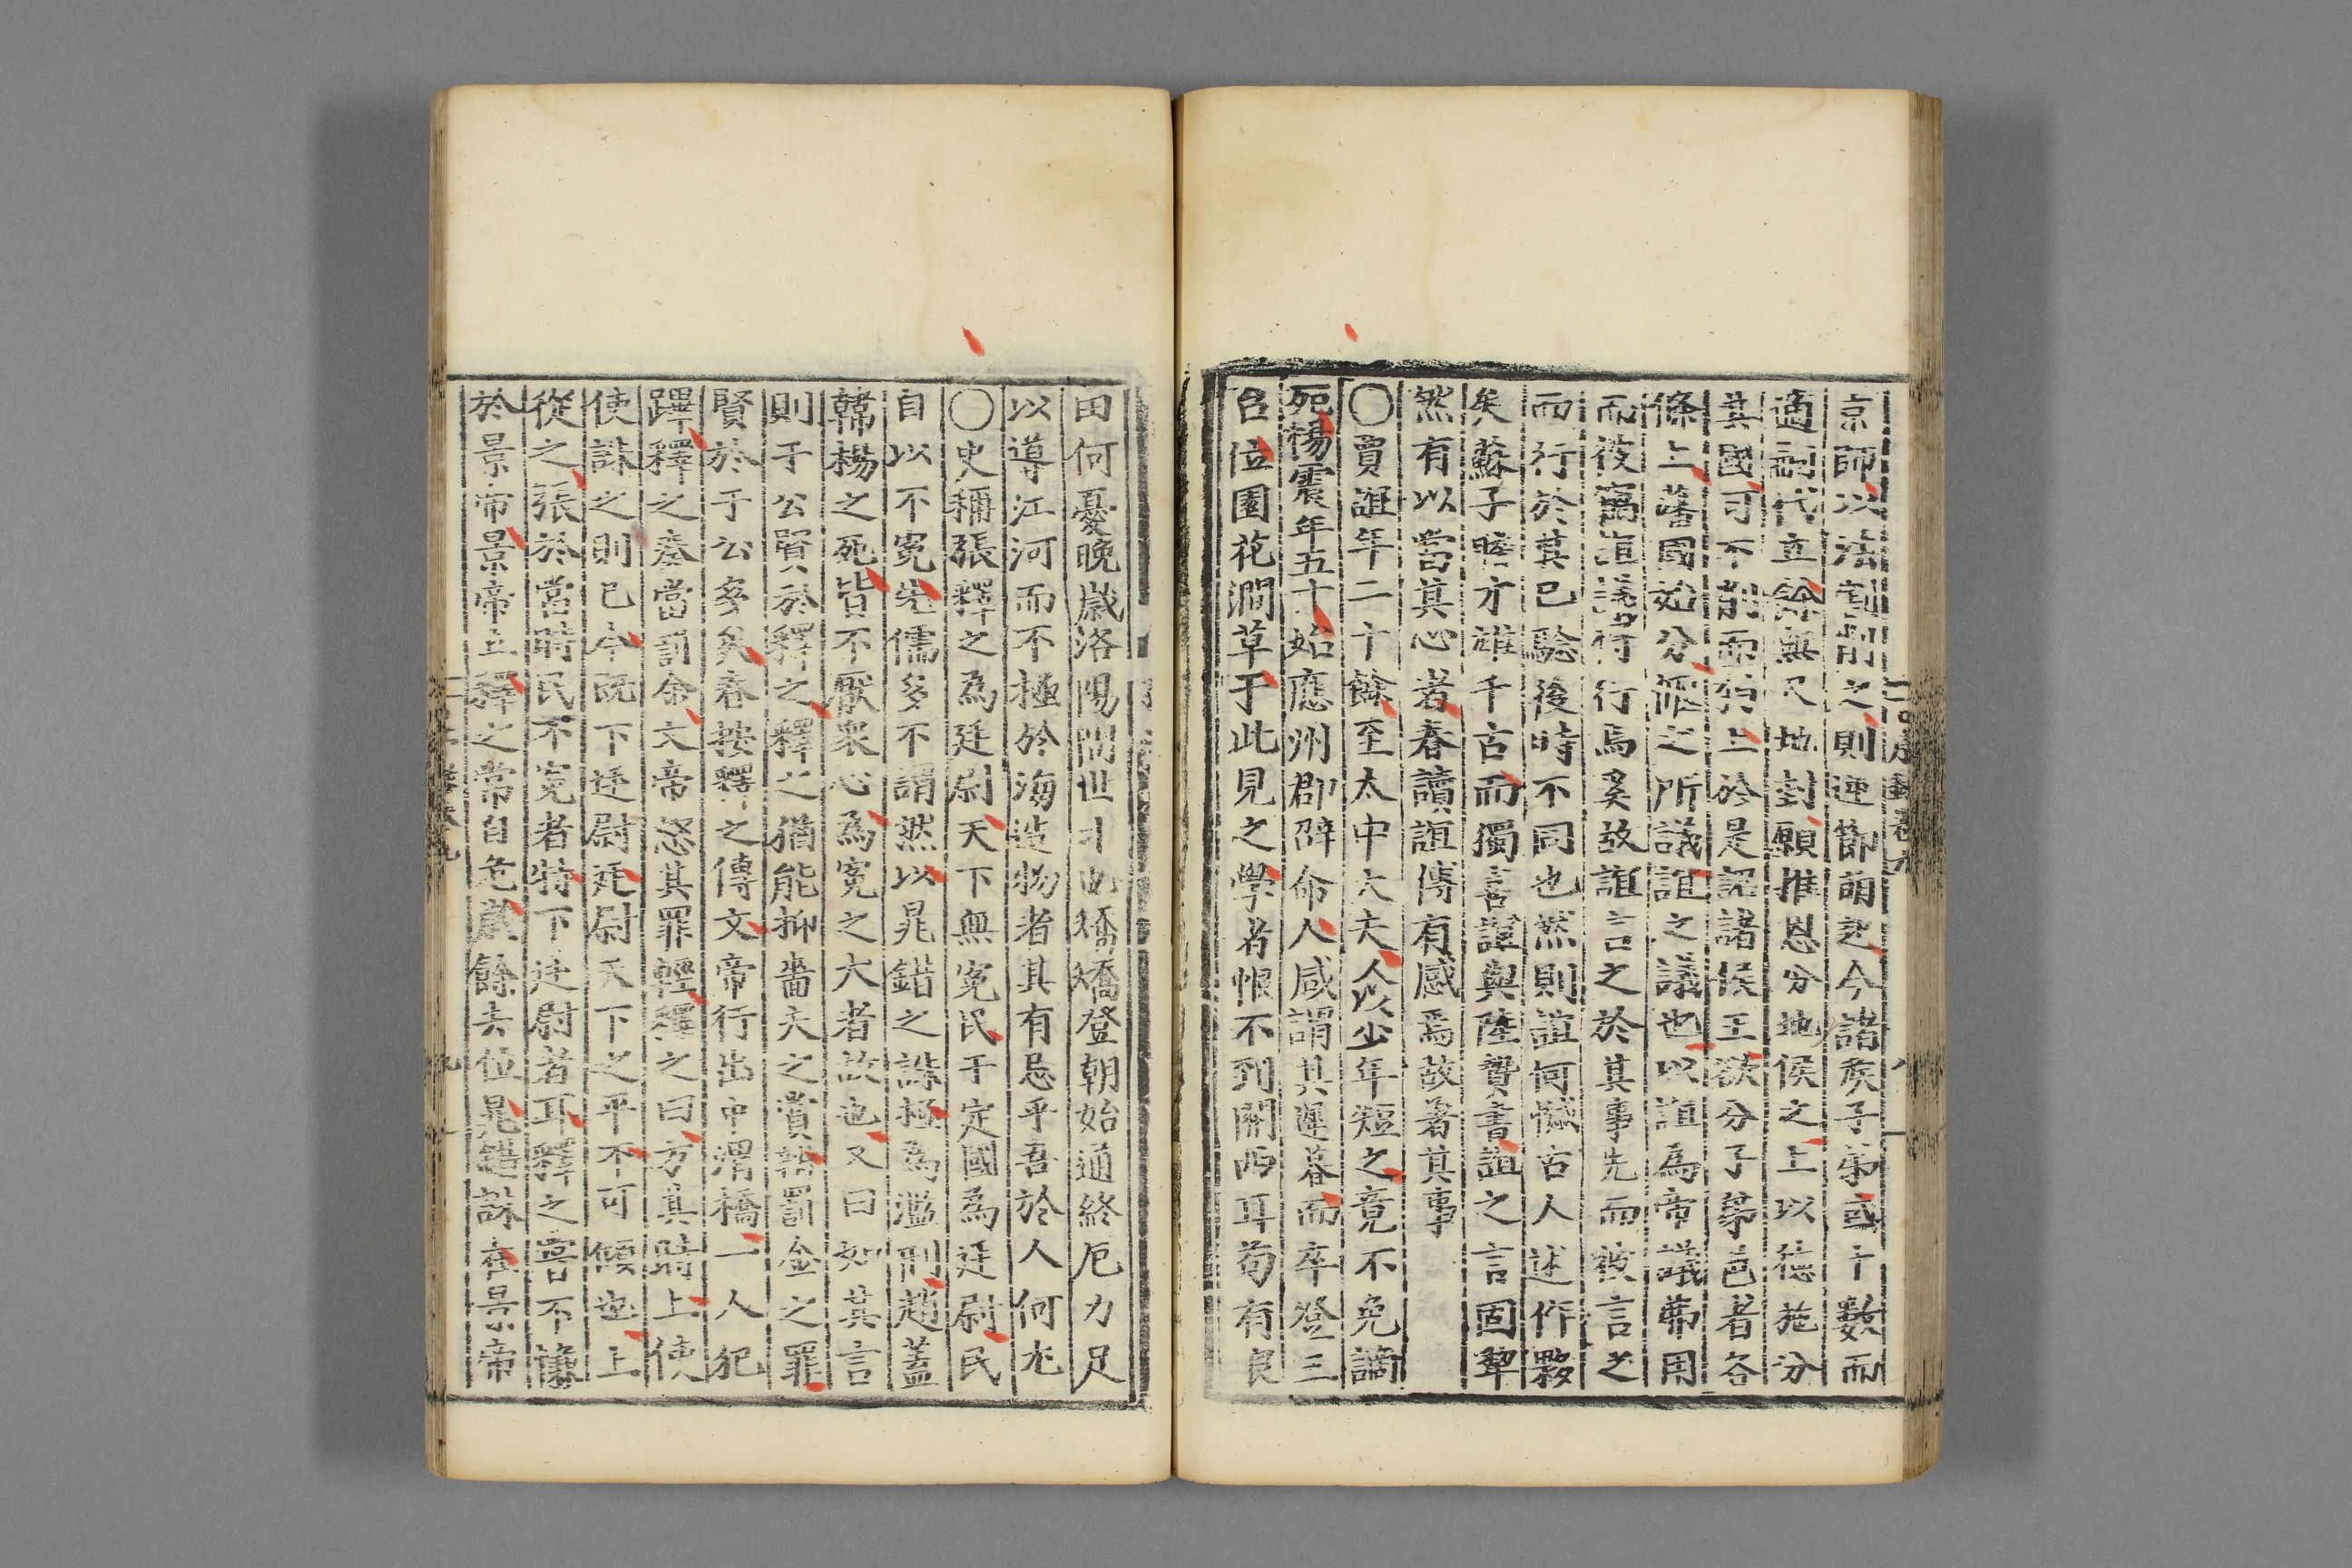 京師以法割削之則逆節萌起今諸侯子弟或十數而
適嗣代立餘無尺地封願推恩分地侯之上以德施分
其國可不削而弱上於是詔諸侯王欲分子弟邑者各
條上蕃國始分偃之所議誼之議也以誼爲帝議弗用
而後竊誼議行焉奚故誼言之於其事先而後言之
而行於其已驗後時不同也然則誼何憾古人述作夥
矣蘇子瞻才雄千古而獨喜誼與陸贄書誼之言固犖
然有以當其心者春讀誼傳有感焉故著其事
〇賈誼年二十餘至太中大夫人以少年短之竟不免謫
死楊震年五十始應州郡辟命人咸謂其遲暮而卒登三
台位園花澗草于此見之學者恨不到關西耳苟有良
田何憂晚歲洛陽間世才也矯矯登朝始通終厄力足
以導江河而不極於海造物者其有忌乎吾於人何尤
〇史稱張釋之爲廷尉天下無冤民于定國爲廷尉民
自以不冤先儒多不謂然以晁錯之誅極爲濫刑趙蓋
韓楊之死皆不厭衆心爲冤之大者故也又曰如其言
則于公賢於釋之釋之猶能抑嗇夫之賞執罰金之罪
賢於于公多矣春按釋之傳文帝行出中渭橋一人犯
蹕釋之奏當罰金文帝怒其罪輕釋之曰方其時上使
使誅之則已今旣下廷尉廷尉天下之平不可傾也上
從之張於當時民不冤者特下廷尉者耳釋之嘗不謙
於景帝景帝立釋之常自危歲餘去位晁錯誅在景帝